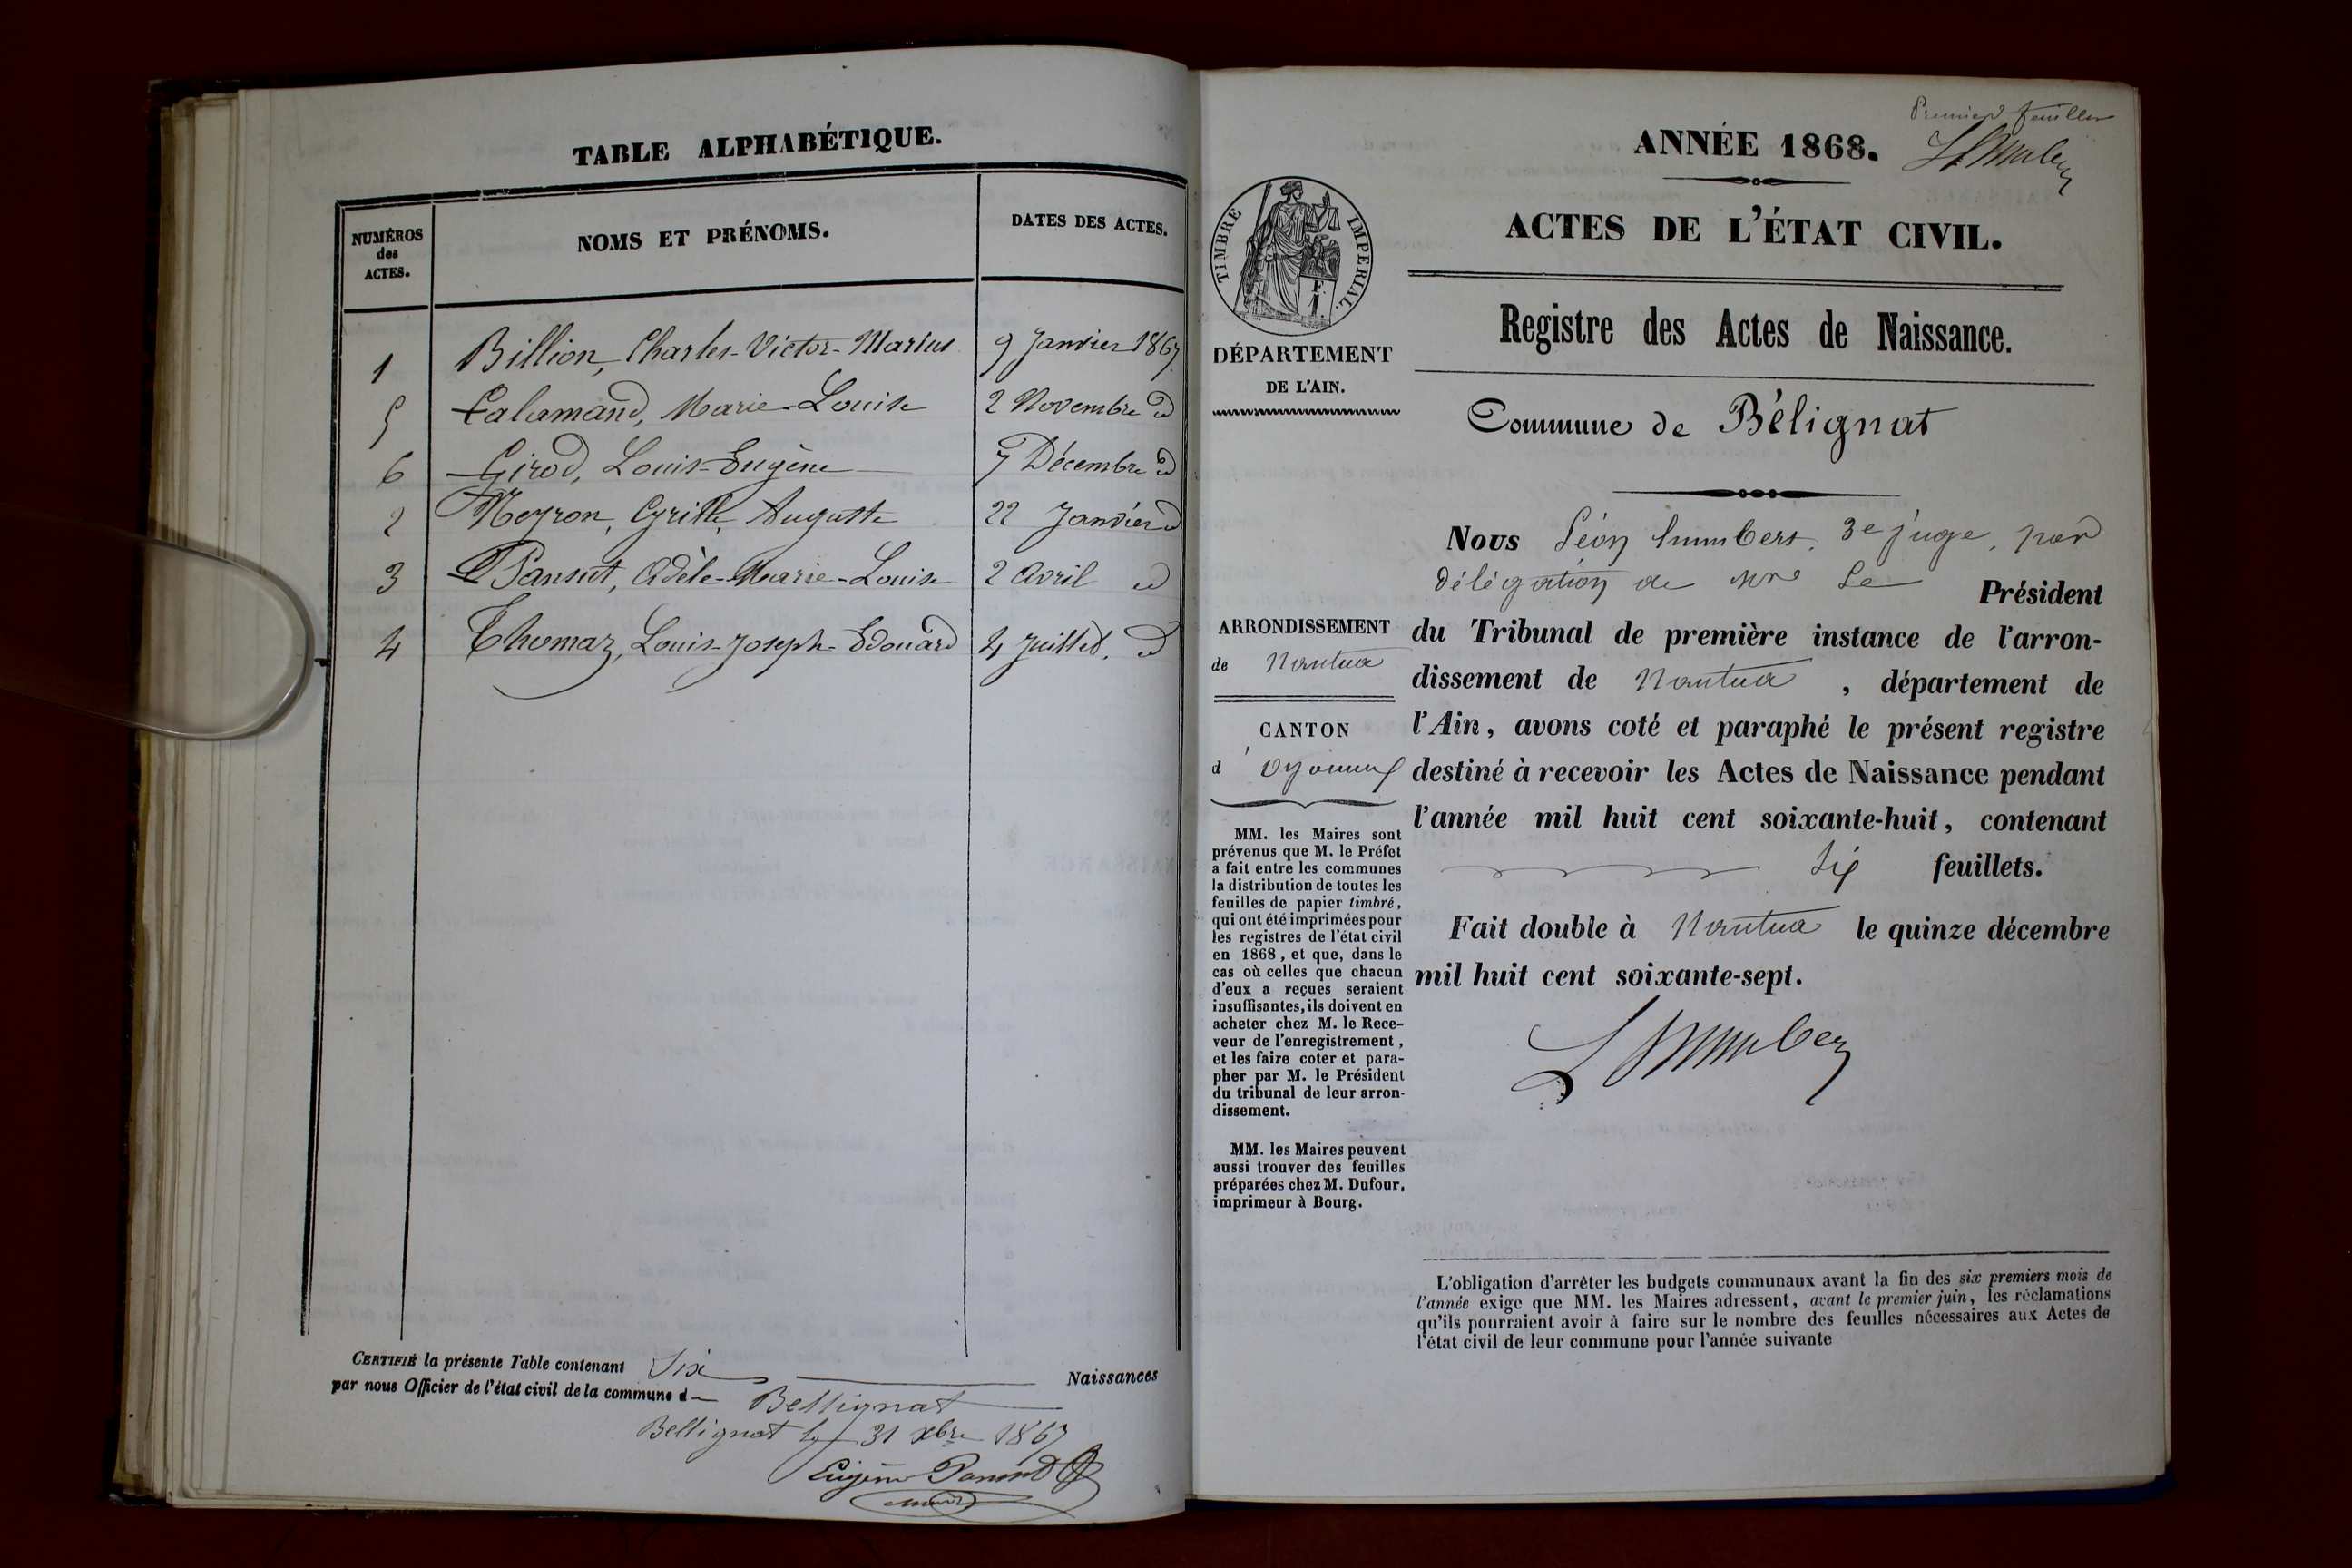 TABLE ALPHABÉTIQUE.
NUMÉROS des ACTES.
NOMS ET PRÉNOMS.
DATES DES ACTES.
1 Billion, Charles-Victor-Marius 9 Janvier 1867
5 Calamand, Marie-Louise 2 Novembre id
6 Girod, Louis-Eugène 7 Décembre id
2 Meyron, Cyrille, Auguste 22 Janvier id
3 Pansut, Adèle-Marie-Louise 2 Avril id
4 Thomaz, Louis-Joseph-Edouard 4 Juillet. id
CERTIFIÉ la présente Table contenant Six Naissances
par nous Officier de l'état civil de la commune d Bellignat
Bellignat le 31 xbre 1867
Eugène
Premier feuillet
ANNÉE 1868.
ACTES DE L'ÉTAT CIVIL.
Registre des Actes de Naissance.
Commune de Bélignat
TIMBRE IMPÉRIAL.
DÉPARTEMENT
DE L'AIN.
ARRONDISSEMENT
de Nantua
CANTON
d'Oyonnax
MM. les Maires sont
prévenus que M. le Préfet
a fait entre les communes
la distribution de toutes les
feuilles de papier timbré,
qui ont été imprimées pour
les registres de l'état civil
en 1868, et que, dans le
cas où celles que chacun
d'eux a reçues seraient
insuffisantes, ils doivent en
acheter chez M. le Rece-
veur de l'enregistrement,
et les faire coter et para-
pher par M. le Président
du tribunal de leur arron-
dissement.
MM. les Maires peuvent
aussi trouver des feuilles
préparées chez M. Dufour,
imprimeur à Bourg.
Nous Léon humbert, 3e juge, par
délégation de Mr Le Président
du Tribunal de première instance de l'arron-
dissement de Nantua, département de
l'Ain, avons coté et paraphé le présent registre
destiné à recevoir les Actes de Naissance pendant
l'année mil huit cent soixante-huit, contenant
six feuillets.
Fait double à Nantua le quinze décembre
mil huit cent soixante-sept.
L'obligation d'arrêter les budgets communaux avant la fin des six premiers mois de
l'année exige que MM. les Maires adressent, avant le premier juin, les réclamations
qu'ils pourraient avoir à faire sur le nombre des feuilles nécessaires aux Actes de
l'état civil de leur commune pour l'année suivante